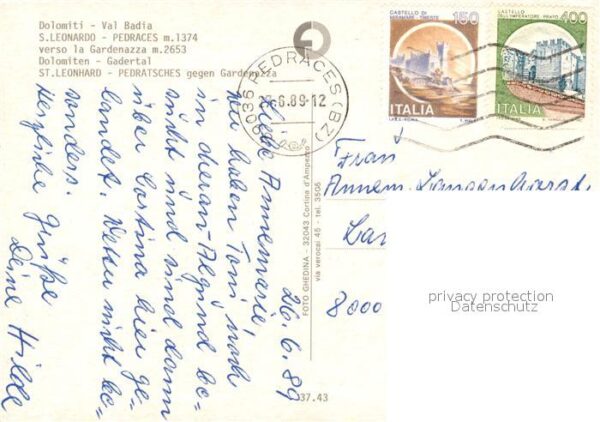 Dolomiti - Val Badia
S.LEONARDO - PEDRACES m.1374
verso la Gardenazza m.2653
Dolomiten - Gadertal
ST.LEONHARD - PEDRATSCHES gegen Gardenazza
39036 PEDRACES (BZ)
6.89-12
CASTELLO DI
MIRAMARE - TRIESTE
150
ITALIA
CASTELLO
DELL'IMPERATORE - PRATO
400
ITALIA
26.6.89
Liebe Annemarie,
wir haben Toni nach
in Meran-Algund be-
sucht und sind dann
über Cortina hier ge-
landet. Wetter nicht be-
sonders.
Herzliche Grüße
Deine Hilde
FOTO GHEDINA - 32043 Cortina d'Ampezzo
via verocai 45 - tel. 3506
37.43
Frau
Annem.
8000
privacy protection
Datenschutz